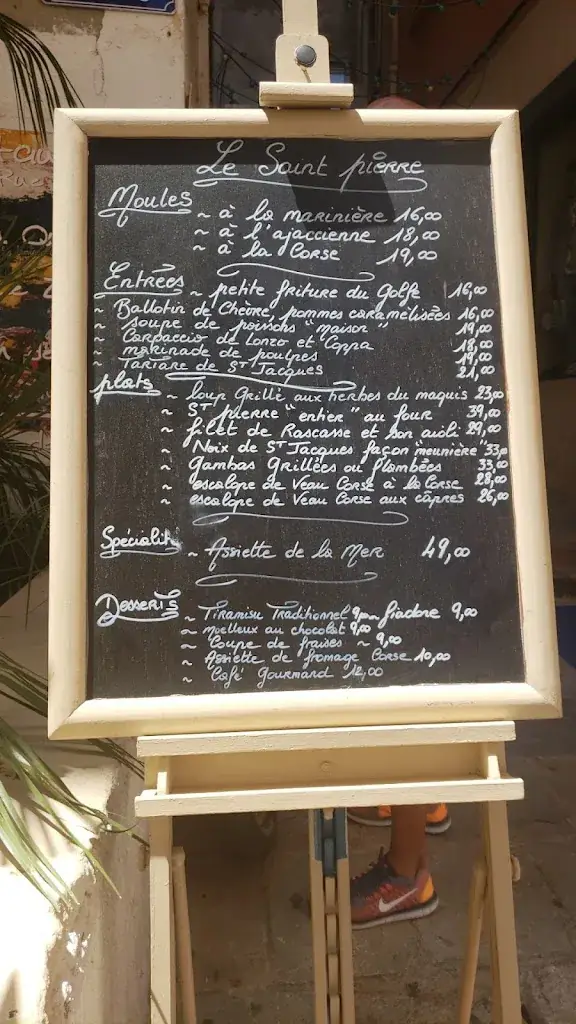 Le Saint pierre
Moules
~ à la marinière 16,00
~ à l'ajaccienne 18,00
~ à la Corse 19,00
Entrées ~ petite friture du Golfe 16,00
~ Ballotin de Chèvre, pommes caramélisées 16,00
~ soupe de poissons "maison" 19,00
~ Carpaccio de Lonzo et Coppa 18,00
~ marinade de poulpes 19,00
~ Tartare de ST Jacques 21,00
plats ~ loup Grillé aux herbes du maquis 23,00
~ ST pierre "entier" au four 39,00
~ filet de Rascasse et son aïoli 29,00
~ Noix de ST Jacques façon "meunière" 33,00
~ Gambas Grillées ou flambées 33,00
~ escalope de Veau Corse à la Corse 28,00
~ escalope de Veau Corse aux câpres 26,00
Spécialité ~ Assiette de la Mer 49,00
Desserts ~ Tiramisu Traditionnel 9,00 ~ fiadone 9,00
~ moelleux au chocolat 9,00
~ Coupe de fraises ~ 9,00
~ Assiette de fromage Corse 10,00
~ Café Gourmand 12,00